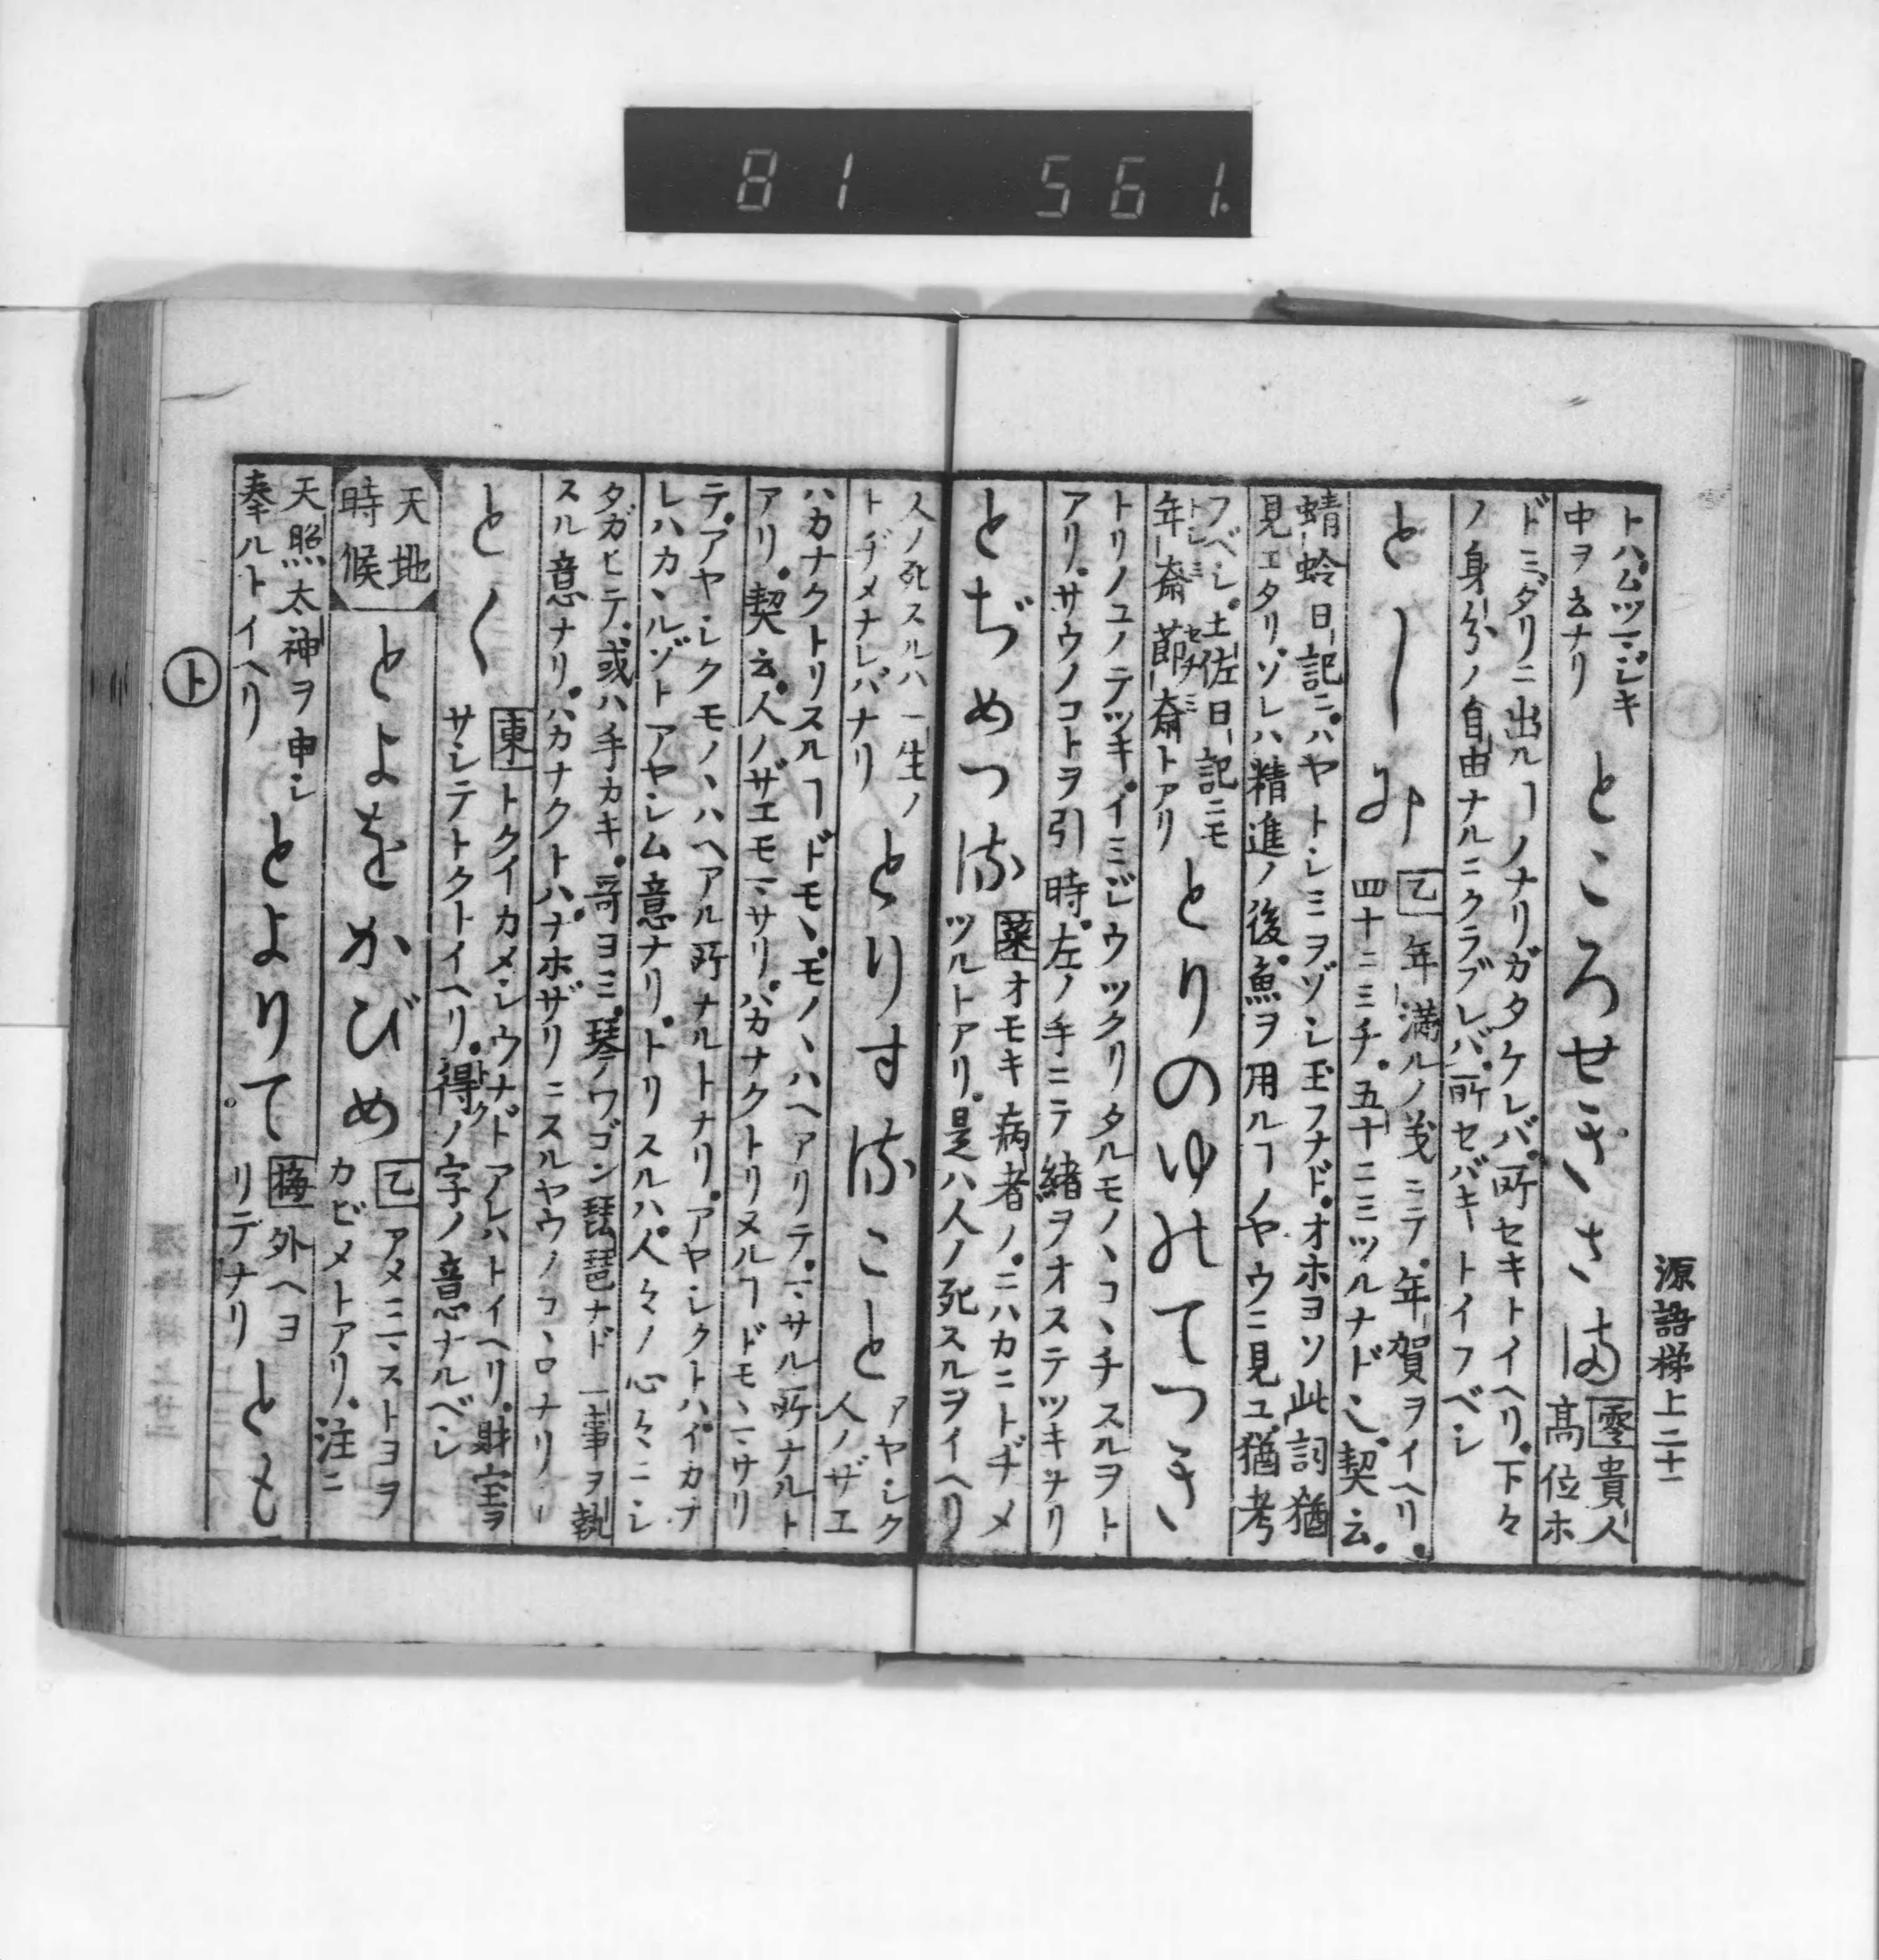 81 561.
源語梯上二十一
トハムツマジキ
中ヲ云ナリ
ところせきさま
雲 貴人
高位ホ
ドミダリニ出ルヿノナリガタケレバ所セキトイヘリ下々
ノ身分ノ自由ナルニクラブレバ所セバキートイフベシ
としみ
乙 年満ルノ義ニテ年賀ヲイヘリ
四十ニミチ五十ニミツルナドシ契云
蜻蛉日記ニハヤトシミヲゾシ玉フナドオホヨソ此詞猶
見エタリソレハ精進ノ後魚ヲ用ルヿノヤウニ見ユ猶考
フベシ土佐日記ニモ
年斎節斎トアリ
とりのゆのてつき
トリノユノテツキイミジウツクリタルモノヽコヽチスルヲト
アリサウノコトヲ引時左ノ手ニテ緒ヲオステツキナリ
とぢめつる
葉 オモキ病者ノニハカニトヂメ
ツルトアリ是ハ人ノ死スルヲイヘリ
人ノ死スルハ一生ノ
トヂメナレバナリ
とりすること
アヤシク
人ノザエ
ハカナクトリスルヿドモヽモノヽハヘアリテマサル所ナルト
アリ契云人ノザエモマサリハカナクトリスルヿドモヽマサリ
テアヤシクモノヽハヘアル所ナルトナリアヤシクトハイカナ
レハカヽルゾトアヤシム意ナリトリスルハ人々ノ心々ニシ
タガヒテ或ハ手カキ哥ヨミ琴ワゴン琵琶ナド一事ヲ執
スル意ナリハカナクトハナホザリニスルヤウノコヽロナリ
とく
東 トクイカメシウナドアレハトイヘリ財宝ヲ
サシテトクトイヘリ得ノ字ノ意ナルベシ
天地
時候
とよをかびめ
乙 アメニマストヨヲ
カビメトアリ注ニ
天照太神ヲ申シ
奉ルトイヘリ
とよりて
梅 外ヘヨ
リテナリ
とも
ト